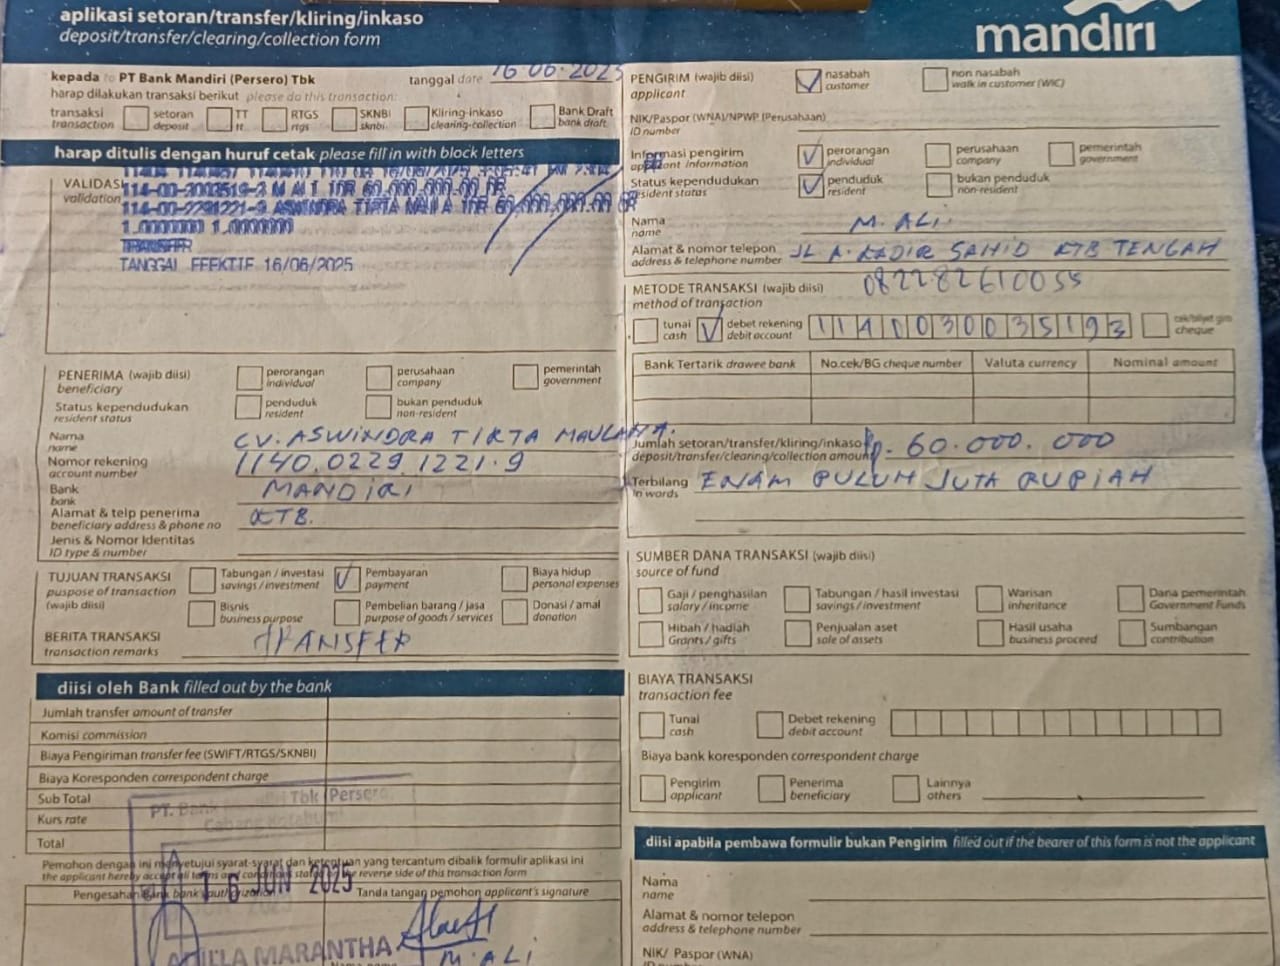 aplikasi setoran/transfer/kliring/inkaso
deposit/transfer/clearing/collection form
mandiri
kepada to PT Bank Mandiri (Persero) Tbk
tanggal date 16.06.2025
harap dilakukan transaksi berikut please do this transaction:
transaksi
transaction
setoran
deposit
TT
tt
RTGS
rtgs
SKNBI
sknbi
Kliring-inkaso
clearing-collection
Bank Draft
bank draft
harap ditulis dengan huruf cetak please fill in with block letters
VALIDASI
validation
IDR 60,000,000.00 DR
114-00-2291221-9 ASWINDRA TIRTA MAULA IDR 60,000,000.00 CR
1.0000000 1.0000000
TRANSFER
TANGGAL EFEKTIF 16/06/2025
PENERIMA (wajib diisi)
beneficiary
perorangan
individual
perusahaan
company
pemerintah
government
Status kependudukan
resident status
penduduk
resident
bukan penduduk
non-resident
Nama
name
CV. ASWINDRA TIRTA MAULANA.
Nomor rekening
account number
1140.0229.1221.9
Bank
bank
MANDIRI
Alamat & telp penerima
beneficiary address & phone no
KTB.
Jenis & Nomor Identitas
ID type & number
TUJUAN TRANSAKSI
puspose of transaction
(wajib diisi)
Tabungan / investasi
savings / investment
Pembayaran
payment
Biaya hidup
personal expenses
Bisnis
business purpose
Pembelian barang / jasa
purpose of goods / services
Donasi / amal
donation
BERITA TRANSAKSI
transaction remarks
TRANSFER
diisi oleh Bank filled out by the bank
Jumlah transfer amount of transfer
Komisi commission
Biaya Pengiriman transfer fee (SWIFT/RTGS/SKNBI)
Biaya Koresponden correspondent charge
Sub Total
Kurs rate
Total
PT. Bank Mandiri Tbk (Persero)
Cabang Kotabumi
Pemohon dengan ini menyetujui syarat-syarat dan ketentuan yang tercantum dibalik formulir aplikasi ini
the applicant hereby accept all terms and conditions stated on the reverse side of this transaction form
16 JUN 2025
Pengesahan Bank bank's authorization
Tanda tangan pemohon applicant's signature
MARANTHA
M. ALI
PENGIRIM (wajib diisi)
applicant
nasabah
customer
non nasabah
walk in customer (WIC)
NIK/Paspor (WNA)/NPWP (Perusahaan)
ID number
Informasi pengirim
applicant information
perorangan
individual
perusahaan
company
pemerintah
government
Status kependudukan
resident status
penduduk
resident
bukan penduduk
non-resident
Nama
name
M. ALI.
Alamat & nomor telepon
address & telephone number
JL A. KADIR SAHID KTB TENGAH
082282610055
METODE TRANSAKSI (wajib diisi)
method of transaction
tunai
cash
debet rekening
debit account
1140030035193
cek/bilyet giro
cheque
Bank Tertarik drawee bank
No.cek/BG cheque number
Valuta currency
Nominal amount
Jumlah setoran/transfer/kliring/inkaso
deposit/transfer/clearing/collection amount
Rp. 60.000.000
Terbilang
in words
ENAM PULUH JUTA RUPIAH
SUMBER DANA TRANSAKSI (wajib diisi)
source of fund
Gaji / penghasilan
salary / income
Tabungan / hasil investasi
savings / investment
Warisan
inheritance
Dana pemerintah
Government Funds
Hibah / hadiah
Grants / gifts
Penjualan aset
sale of assets
Hasil usaha
business proceed
Sumbangan
contribution
BIAYA TRANSAKSI
transaction fee
Tunai
cash
Debet rekening
debit account
Biaya bank koresponden correspondent charge
Pengirim
applicant
Penerima
beneficiary
Lainnya
others
diisi apabila pembawa formulir bukan Pengirim filled out if the bearer of this form is not the applicant
Nama
name
Alamat & nomor telepon
address & telephone number
NIK/ Paspor (WNA)